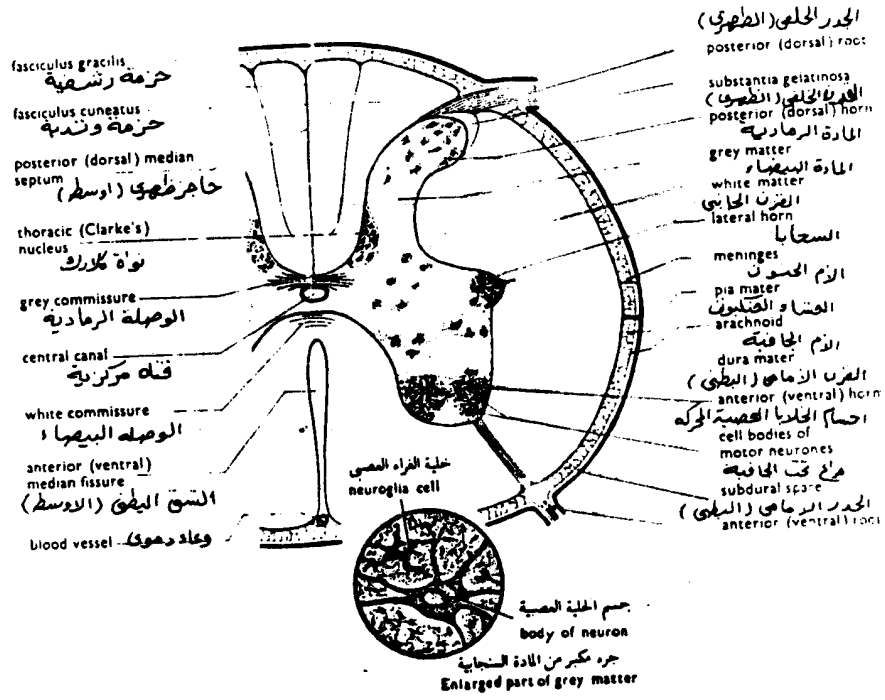 fasciculus gracilis
حزمة رشيقة
fasciculus cuneatus
حزمة وتدية
posterior (dorsal) median
septum
حاجز ظهري (اوسط)
thoracic (Clarke's)
nucleus
نواة كلارك
grey commissure
الوصلة الرمادية
central canal
قناه مركزية
white commissure
الوصله البيضاء
anterior (ventral)
median fissure
الشق البطني (الاوسط)
blood vessel
وعاء دموي
الجذر الخلفي (الظهري)
posterior (dorsal) root
substantia gelatinosa
القرن الخلفي (الظهري)
posterior (dorsal) horn
المادة الرمادية
grey matter
المادة البيضاء
white matter
القرن الجانبي
lateral horn
السحايا
meninges
الأم الحنون
pia mater
الغشاء العنكبوتي
arachnoid
الأم الجافية
dura mater
القرن الأمامي (البطني)
anterior (ventral) horn
اجسام الخلايا العصبية الحركه
cell bodies of
motor neurones
فراغ تحت الجافية
subdural space
الجذر الامامي (البطني)
anterior (ventral) root
خلية الغراء العصبي
neuroglia cell
جسم الخلية العصبية
body of neuron
جزء مكبر من المادة السنجابية
Enlarged part of grey matter